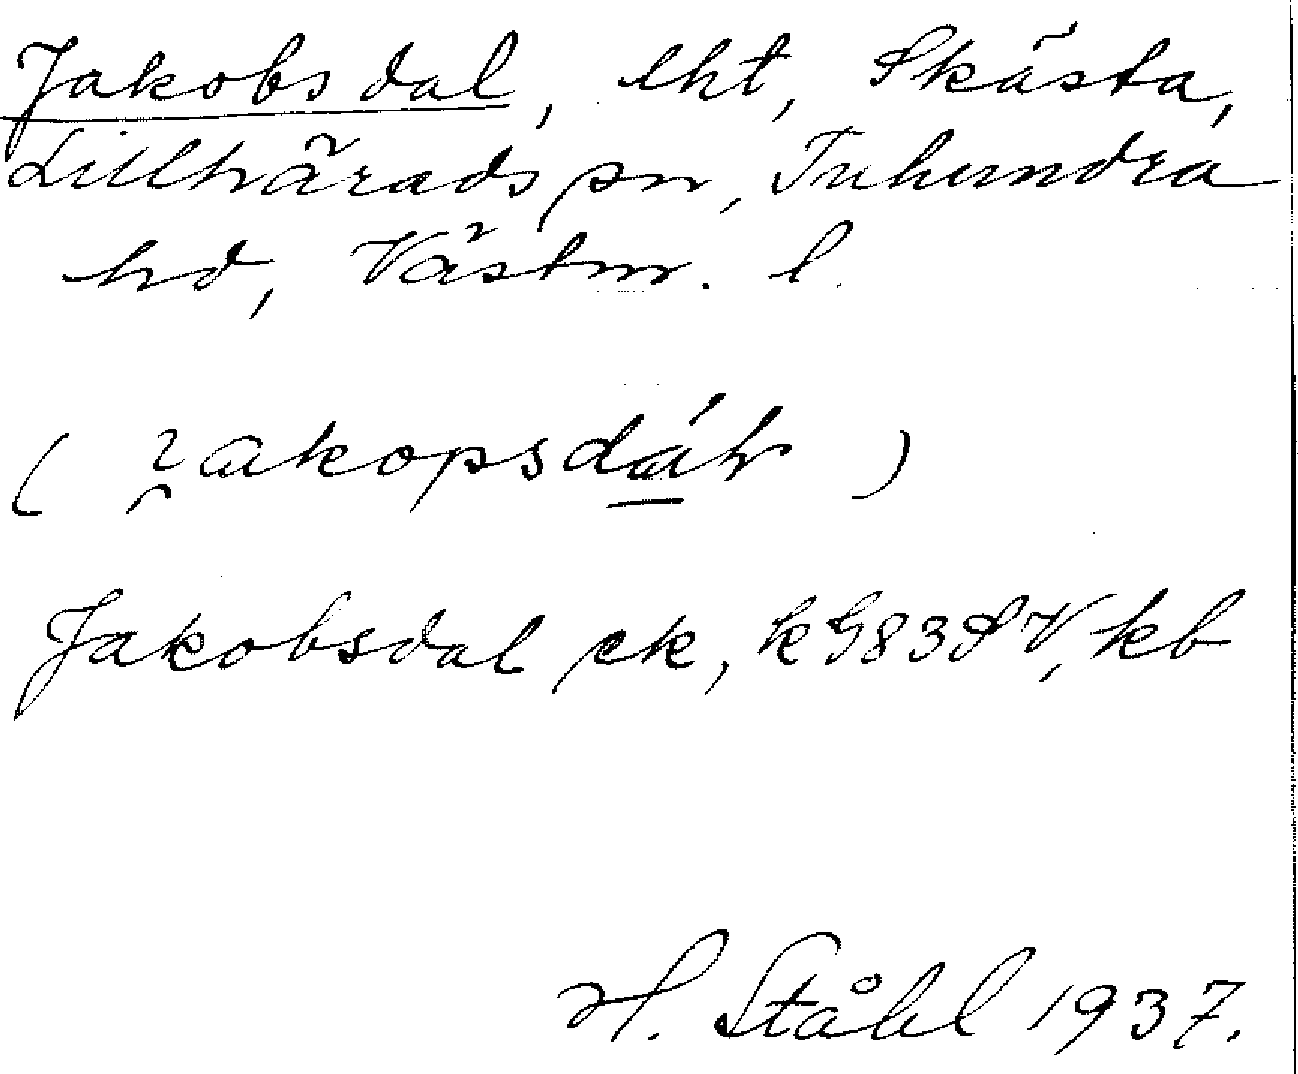 Jakobsdal, lht, Skästa,
Lillhärads sn, Tuhundra
hd, Västm. l.
Jakobsdal ek, kG83SV, kb
H. Ståhl 1937.